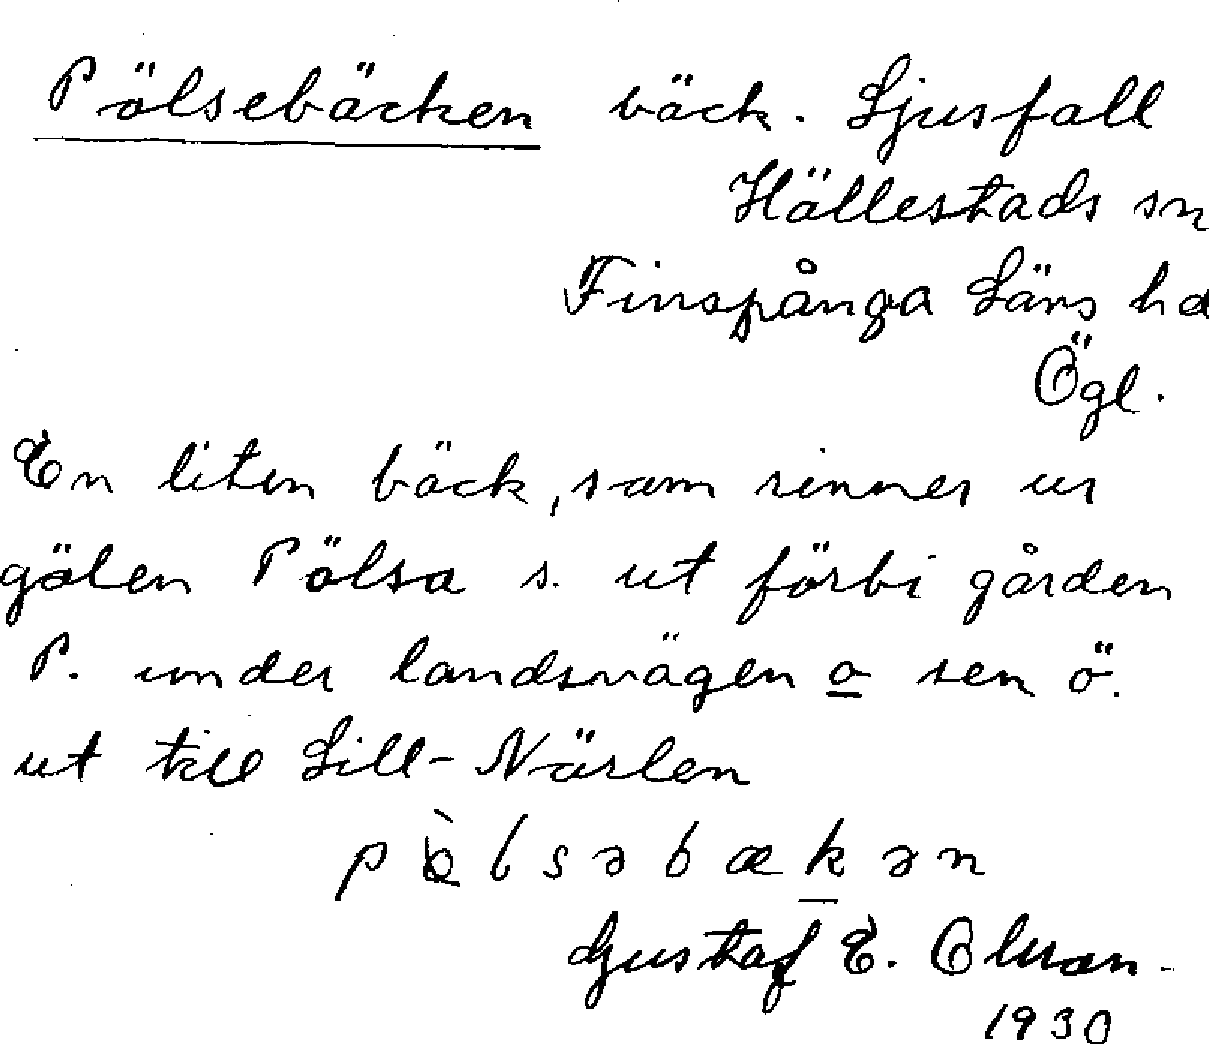 Pölsebäcken bäck. Ljusfall
Hällestads sn
Finspånga Läns hd
Ögl.
En liten bäck, som rinner ur
gölen Pölsa s. ut förbi gården
P. under landsvägen o sen ö.
ut till Lill-Närlen
bækən
Gustaf E.
1930